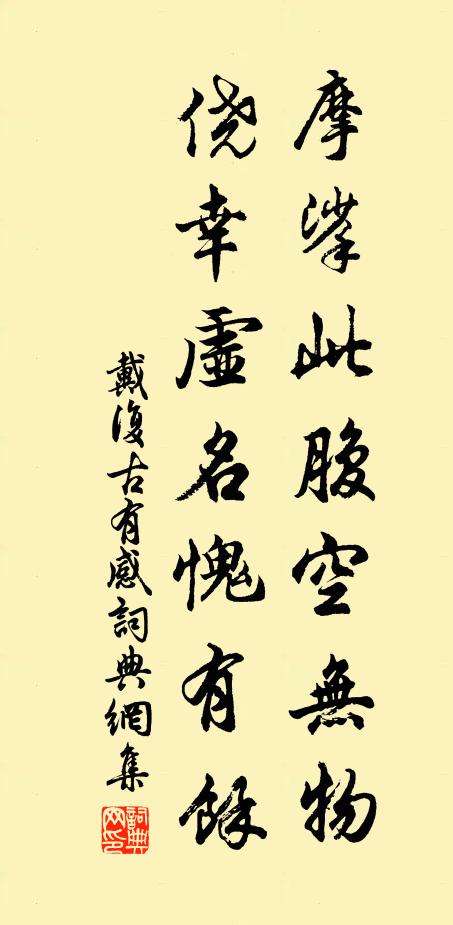 摩挲此腹空無物
僥幸虛名愧有餘
戴復古有感詞典網集
詞典网印